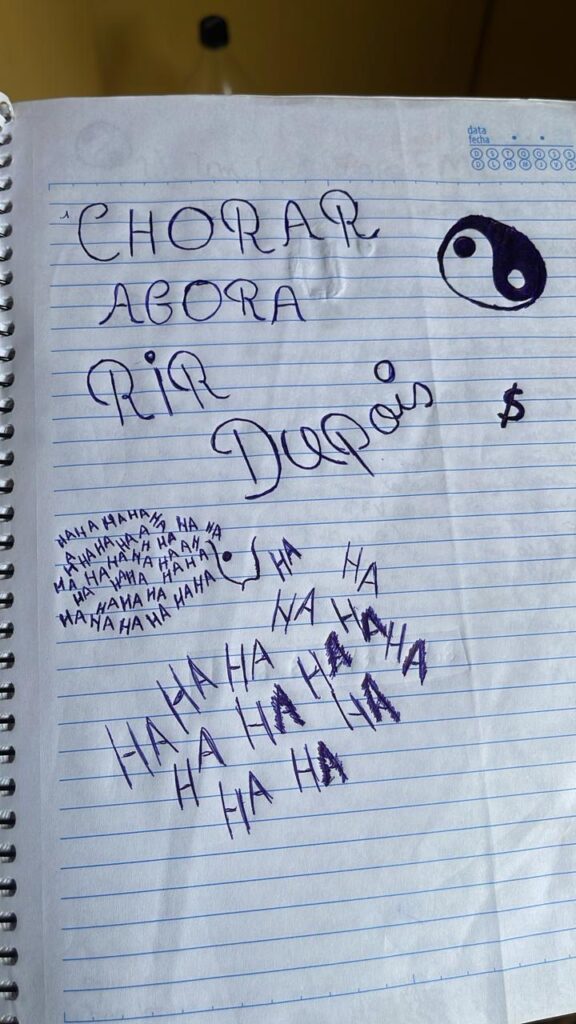 data
fecha
D S T Q Q S S
D L M M J V S
CHORAR
AGORA
RIR
Depois
$
HAHA HAHAHA
HA HA HA
A HAHA HA A
HAHA HA H HA AH
HA HA HA HA HA HA
HA HAHA HAHA
HA HAHA HA HAHA
HA HA HA HA
HA HA
HA HA
HA HA HA HA
HA HA HA
HA HA
HA HA